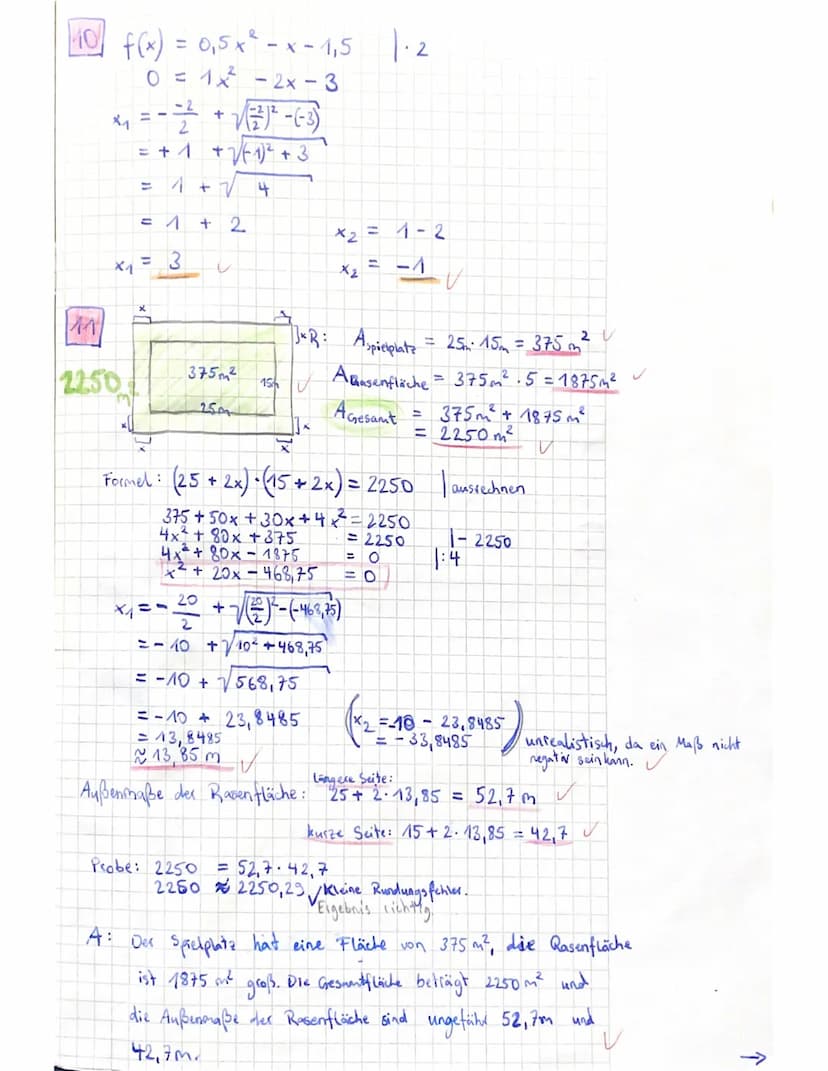 10 f(x) = 0,5x² - x - 1,5 | · 2
0 = 1x² - 2x - 3
x₁ = - -2/2 + √((-2/2)² - (-3))
= + 1 + √((-1)² + 3)
= 1 + √4
= 1 + 2
x₁ = 3
x₂ = 1 - 2
x₂ = -1
11
x x
]x R: A Spielplatz = 25m · 15m = 375 m²
2250 m² 375m² 15m A Rasenfläche = 375m² · 5 = 1875m²
25m A Gesamt = 375m² + 1875m²
x ]x = 2250 m²
x x
Formel: (25 + 2x) · (15 + 2x) = 2250 | ausrechnen
375 + 50x + 30x + 4x² = 2250
4x² + 80x + 375 = 2250 | - 2250
4x² + 80x - 1875 = 0 | : 4
x² + 20x - 468,75 = 0
x₁ = - 20/2 + √((20/2)² - (-468,75))
= - 10 + √(10² + 468,75)
= -10 + √568,75
= -10 + 23,8485
= 13,8485
≈ 13,85 m
(x₂ = -10 - 23,8485
= - 33,8485)
unrealistisch, da ein Maß nicht
negativ sein kann.
Längere Seite:
Außenmaße der Rasenfläche: 25 + 2 · 13,85 = 52,7 m
kurze Seite: 15 + 2 · 13,85 = 42,7
Probe: 2250 = 52,7 · 42,7
2250 ≈ 2250,29 Kleine Rundungsfehler.
Ergebnis richtig.
A: Der Spielplatz hat eine Fläche von 375 m², die Rasenfläche
ist 1875 m² groß. Die Gesamtfläche beträgt 2250 m² und
die Außenmaße der Rasenfläche sind ungefähr 52,7m und
42,7m.
→